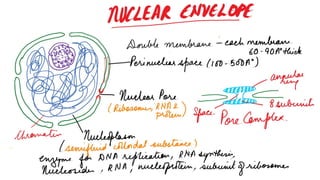 NUCLEAR ENVELOPE
Double membrane - each membrane
60-90A° thick
Perinuclear space (100-500A°)
Nuclear Pore
(Ribosomes, RNA &
protein)
annular
ring
Space
8 subunit
Pore Complex
Chromatin
Nucleoplasm
(semifluid colloidal substance)
enzyme for DNA replication, RNA synthesis,
Nucleosides, RNA, nucleoprotein, subunit of ribosome